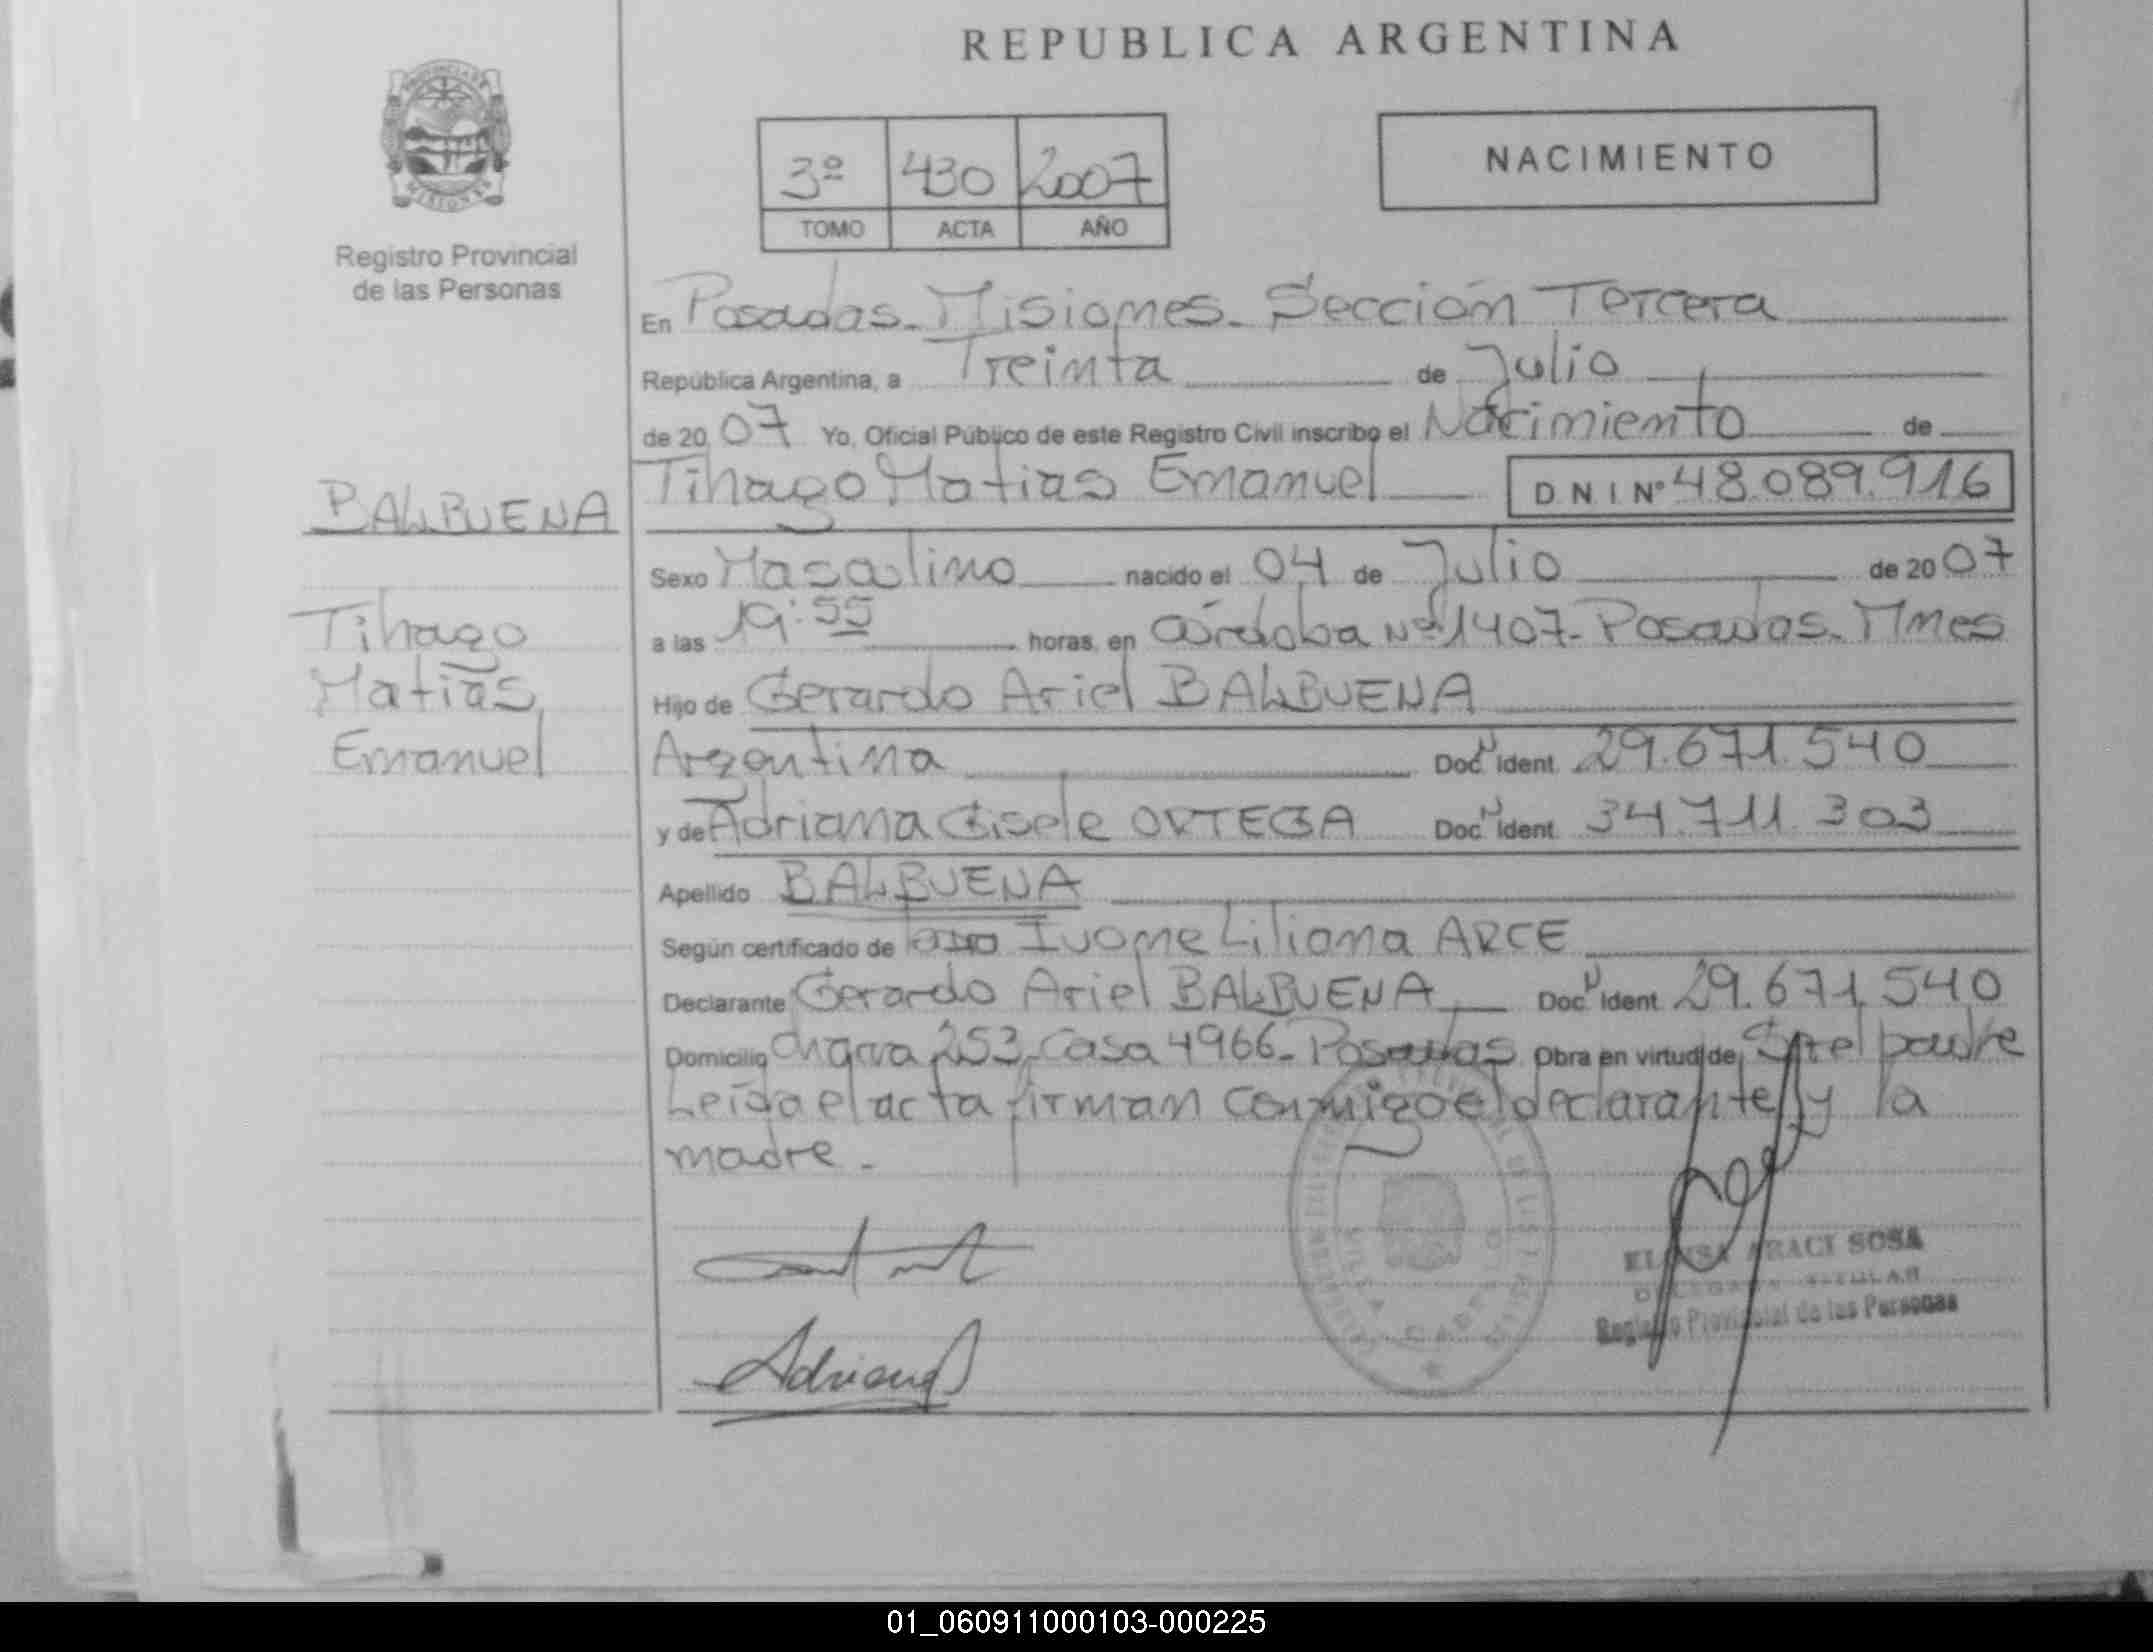 REPUBLICA ARGENTINA
NACIMIENTO
3º 430 2007
TOMO ACTA AÑO
Registro Provincial
de las Personas
En Posadas-Misiones-Sección Tercera
República Argentina, a Treinta de Julio
de 20 07 Yo, Oficial Público de este Registro Civil inscribo el Nacimiento de
Tihago Matias Emanuel D N I Nº 48.089.916
BALBUENA
Tihago
Matias
Emanuel
Sexo Masculino nacido el 04 de Julio de 20 07
a las 19:55 horas, en Córdoba Nº 1407-Posadas-Mnes
Hijo de Gerardo Ariel BALBUENA
Argentina Doc. Ident 29.671.540
y de Adriana Gisele ORTEGA Doc. Ident 34.711.303
Apellido BALBUENA
Según certificado de Ivone Liliana ARCE
Declarante Gerardo Ariel BALBUENA Doc. Ident 29.671.540
Domicilio 253, Casa 4966-Posadas Obra en virtud de el padre
Leída el acta firman conmigo el declarante y la
madre-
Adriana
ARACI SOSA
TITULAR
Registro Provincial de las Personas
01_060911000103-000225